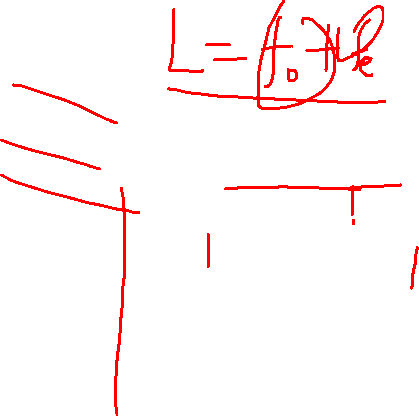 L = f_o + f_e